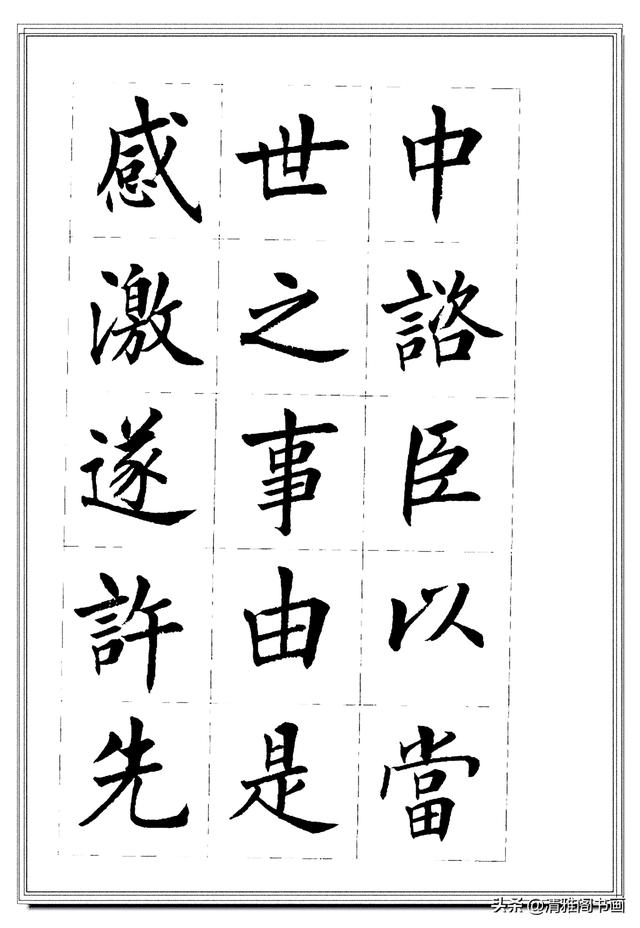 中諮臣以當
世之事由是
感激遂許先
头条@清雅阁书画